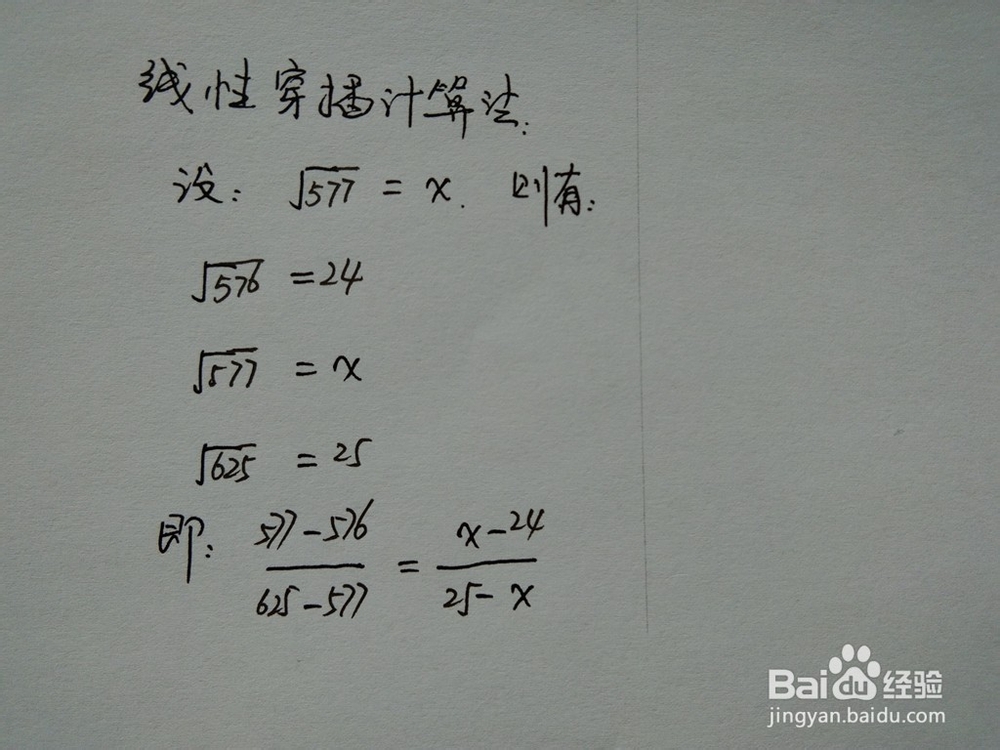 线性穿插计算法:
设: √577 = x. 则有:
√576 = 24
√577 = x
√625 = 25
即: (577-576)/(625-577) = (x-24)/(25-x)
Baidu经验
jingyan.baidu.com